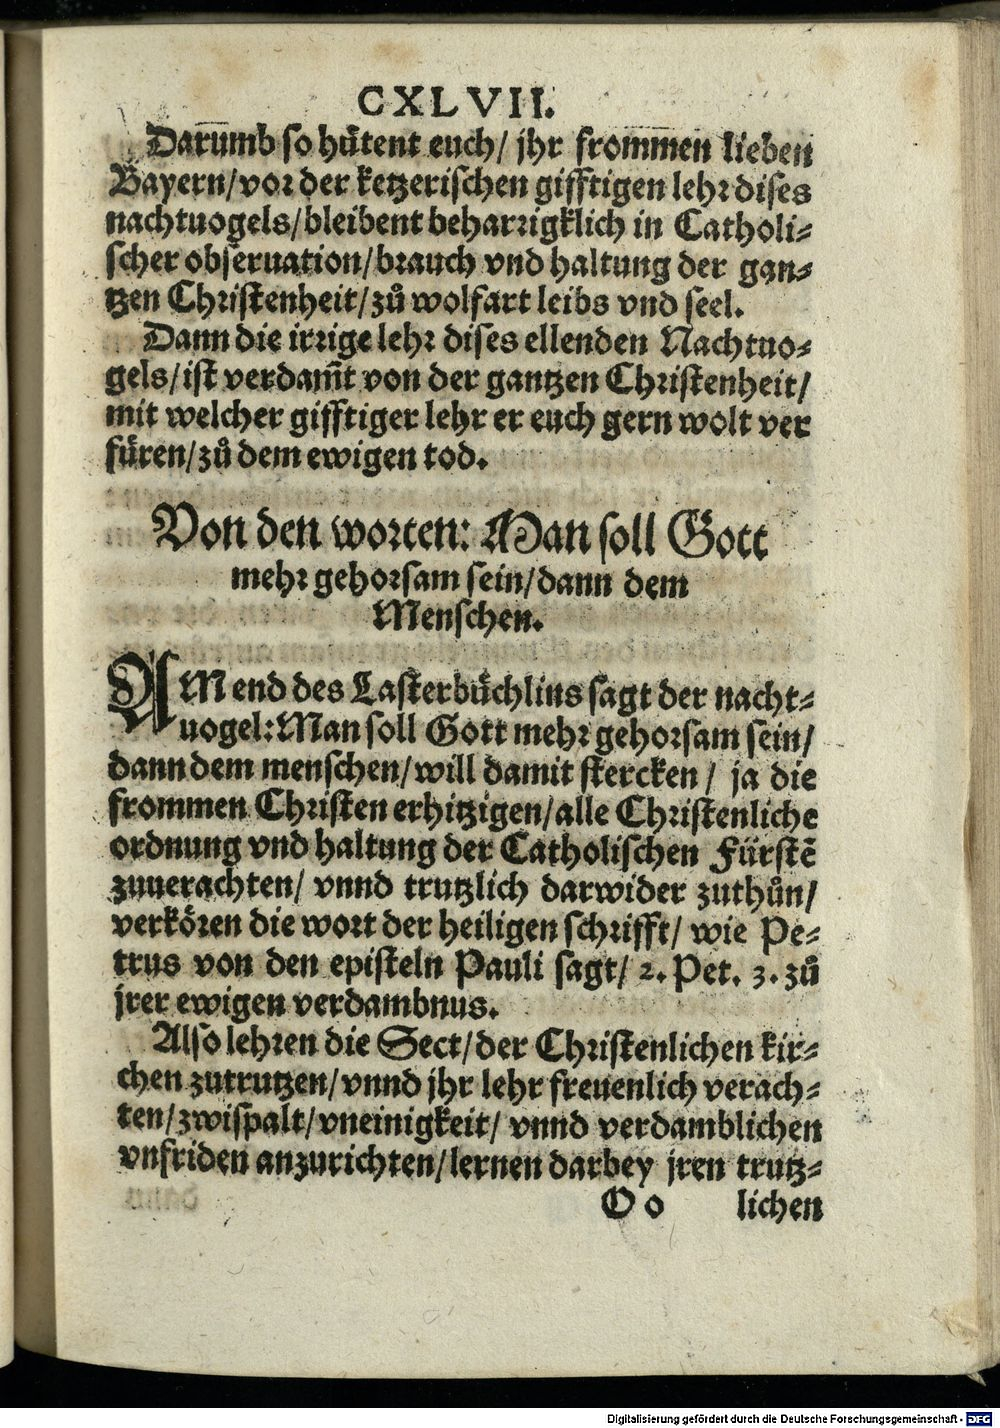 CXLVII.
Darumb so hütent euch/ jhr frommen lieben
Bayern/vor der ketzerischen gifftigen lehr dises
nachtuogels/bleibent beharrigklich in Catholi⸗
scher obseruation/brauch vnd haltung der gan⸗
tzen Christenheit/zů wolfart leibs vnd seel.
Dann die irrige lehr dises ellenden Nachtuo⸗
gels/ist verdam̃t von der gantzen Christenheit/
mit welcher gifftiger lehr er euch gern wolt ver
füren/zů dem ewigen tod.
Von den worten: Man soll Gott
mehr gehorsam sein/dann dem
Menschen.
AM end des Lasterbüchlins sagt der nacht⸗
uogel:Man soll Gott mehr gehorsam sein/
dann dem menschen/will damit stercken/ ja die
frommen Christen erhitzigen/alle Christenliche
ordnung vnd haltung der Catholischen Fürstẽ
zuuerachten/ vnnd trutzlich darwider zuthůn/
verkören die wort der heiligen schrifft/ wie Pe⸗
trus von den episteln Pauli sagt/ 2. Pet. 3. zů
jrer ewigen verdambnus.
Also lehren die Sect/der Christenlichen kir⸗
chen zutrutzen/vnnd jhr lehr freuenlich verach⸗
ten/zwispalt/vneinigkeit/ vnnd verdamblichen
vnfriden anzurichten/lernen darbey jren trutz⸗
O o lichen
Digitalisierung gefördert durch die Deutsche Forschungsgemeinschaft - DFG